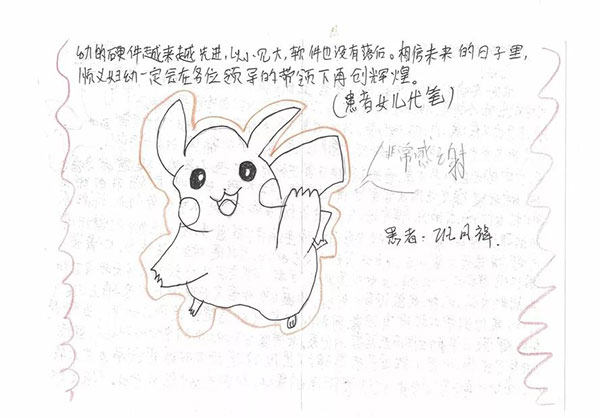 幼的硬件越来越先进,以小见大,软件也没有落后。相信未来的日子里,
顺义妇幼一定会在各位领导的带领下再创辉煌。
(患者女儿代笔)
非常感谢
患者: